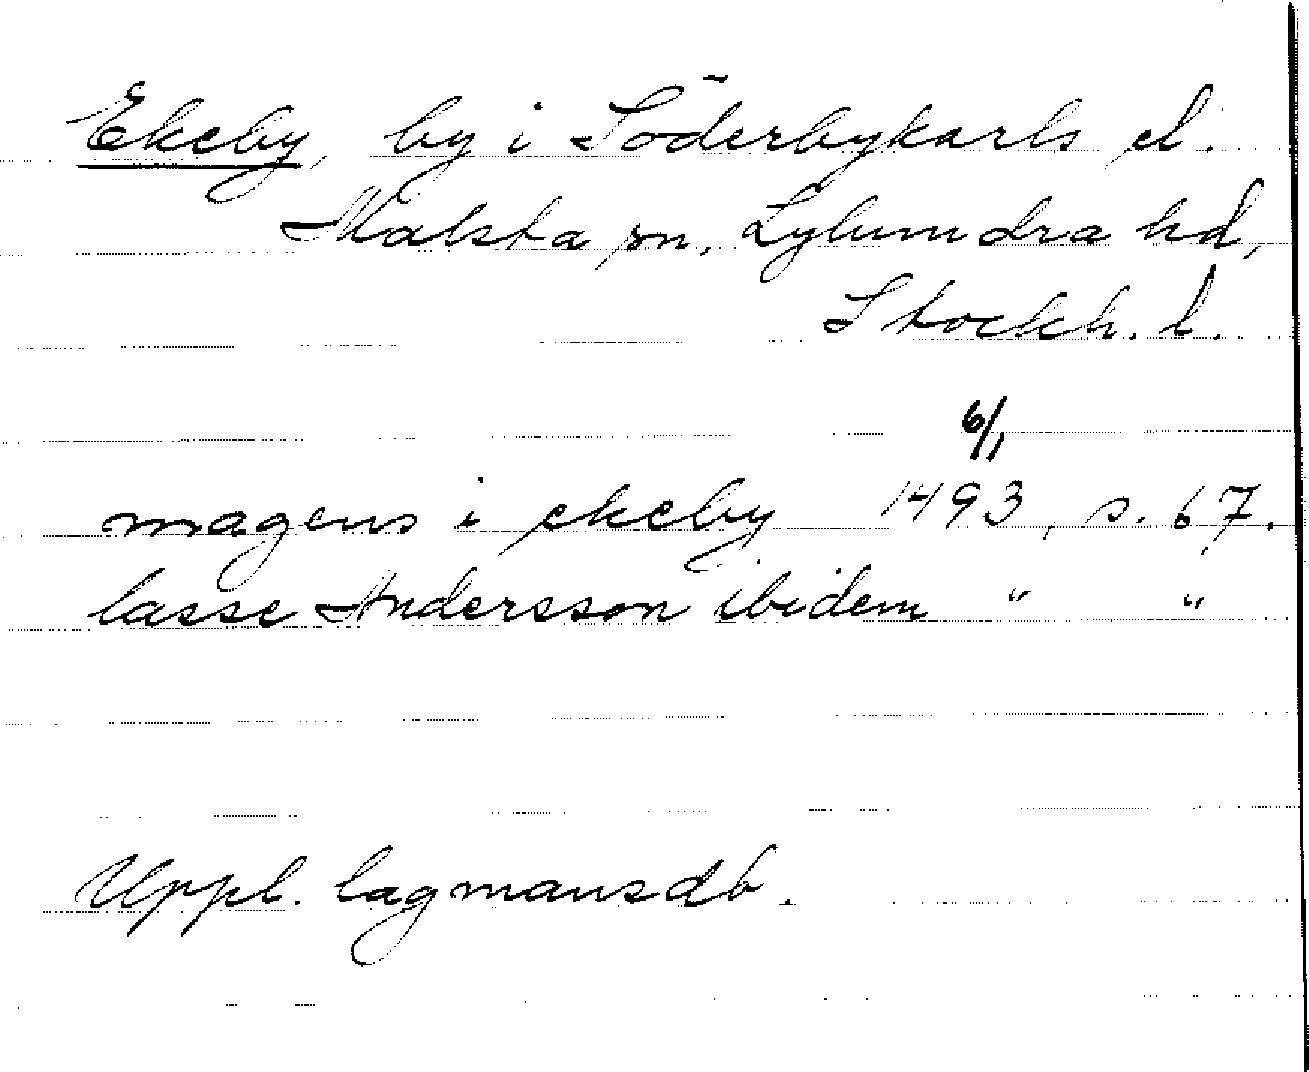 Ekeby, by i Söderbykarls el.
Malsta sn, Lyhundra hd,
Stockh. l.
6/1
magens i ekeby 1493, s. 67.
lasse Andersson ibidem " "
Uppl. lagmansdb.